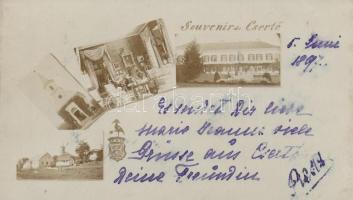 Souvenir de Csertő
5. Juni
189
Es sendet Dir liebe
Marie Deine viele
Grüsse aus Csertő
Deine Freundin